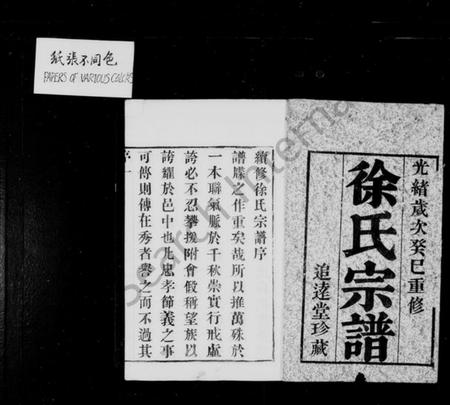 紙張不同色
PAPERS OF VARIOUS COLORS
光緒歲次癸巳重修
徐氏宗譜
追逵堂珍藏
續修徐氏宗譜序
譜牒之作重矣哉所以推萬殊於
一本聯氣脈於千秋崇實行戒虛
誇必不忍攀援附會假稱望族以
誇耀於邑中也凡忠孝節義之事
可傳則傳在秀者譽之而不過其
序一